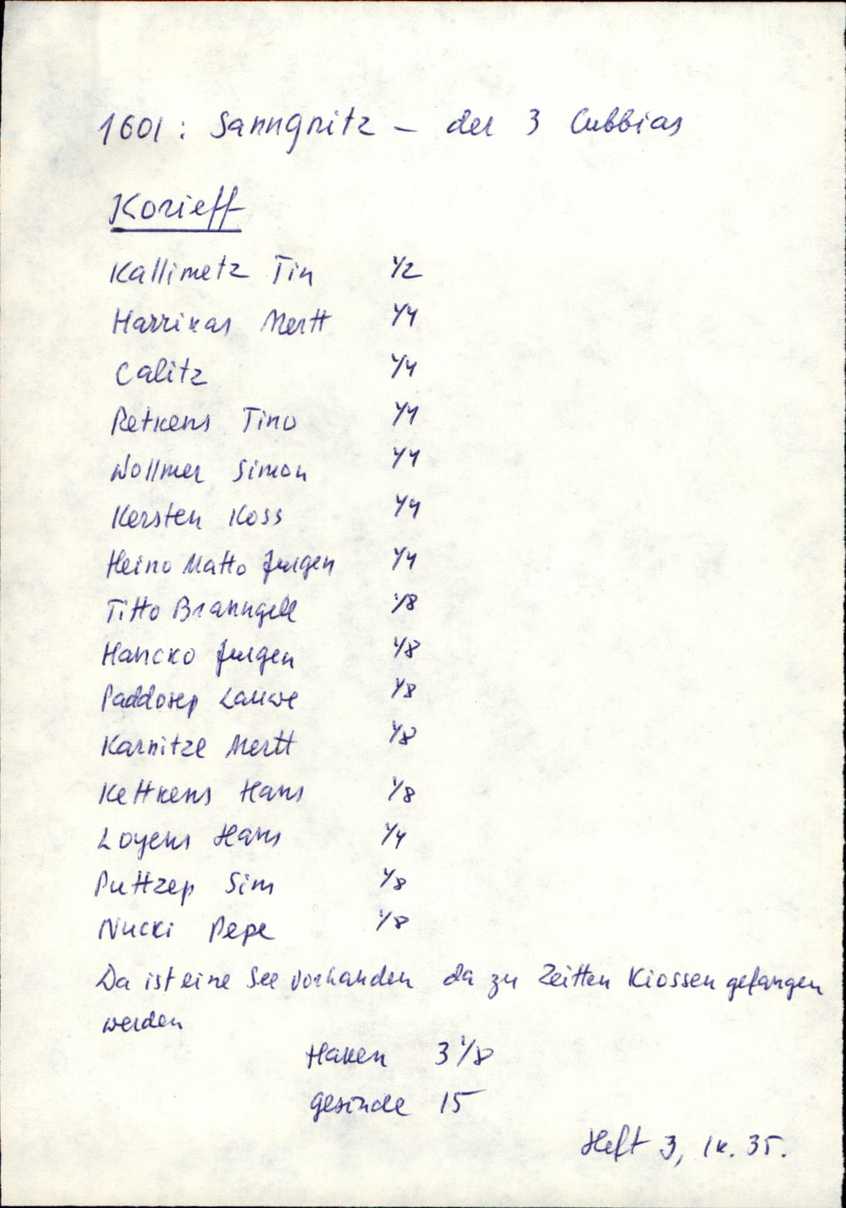 1601: Sanngnitz - der 3 Cubbias
Korieff
Kallimetz Tin 1/2
Harrikas Mertt 1/4
Calitz 1/4
Retkens Tino 1/4
Wollmer Simon 1/4
Kersten Koss 1/4
Heino Matto Jurgen 1/4
Titto Branngell 1/8
Hancko Jurgen 1/8
Paddosep Lauwe 1/8
Karnitze Mertt 1/8
Kettkens Hans 1/8
Loyens Hans 1/4
Puttzep Sim 1/8
Nucki Pepe 1/8
Da ist eine See vorhanden da zu Zeitten Kiossen gefangen
werden
Haken 3 1/8
gesinde 15
Heft 3, lk. 35.